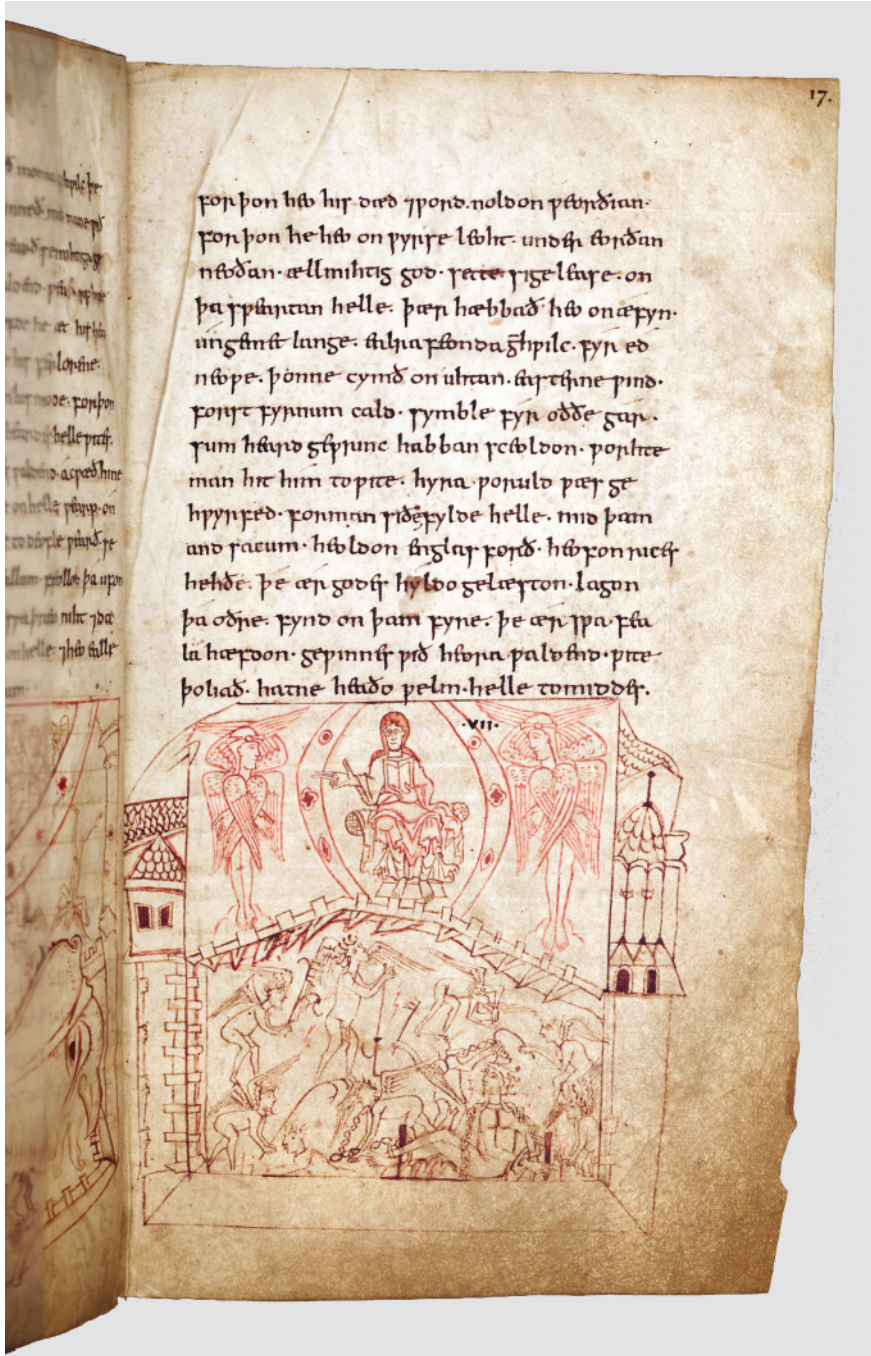 gehƿilc þe
forþon
helle ƿites.
acƿæð hine
on helle
to deofle
þa ufon
niht ⁊ dæ
on helle ⁊ heo ealle
17.
forþon heo his dæd ⁊ ƿord. noldon ƿeorðian.
forþon he heo on ƿyrse leoht. under eorðan
neoðan. ællmihtig god. sette sigelease. on
þa sƿeartan helle. þær hæbbað heo on æfyn.
ungemet lange. ealra feonda gehƿilc. fyr ed
neoƿe. þonne cymð on uhtan. easterne ƿind.
forst fyrnum cald. symble fyr oððe gar.
sum heard gesƿinc habban sceoldon. ƿorhte
man hit him to ƿite. hyra ƿoruld ƿæs ge
hƿyrfed. forman siðe fylde helle. mid þam
and sacum. heoldon englas forð. heofon rices
hehðe. þe ær godes hyldo gelæston. lagon
þa oðre. fynd on þam fyre. þe ær sƿa fea
la hæfdon. geƿinnes ƿið heora ƿaldend. ƿite
þoliað. hatne heaðo ƿelm. helle tomiddes.
.VII.